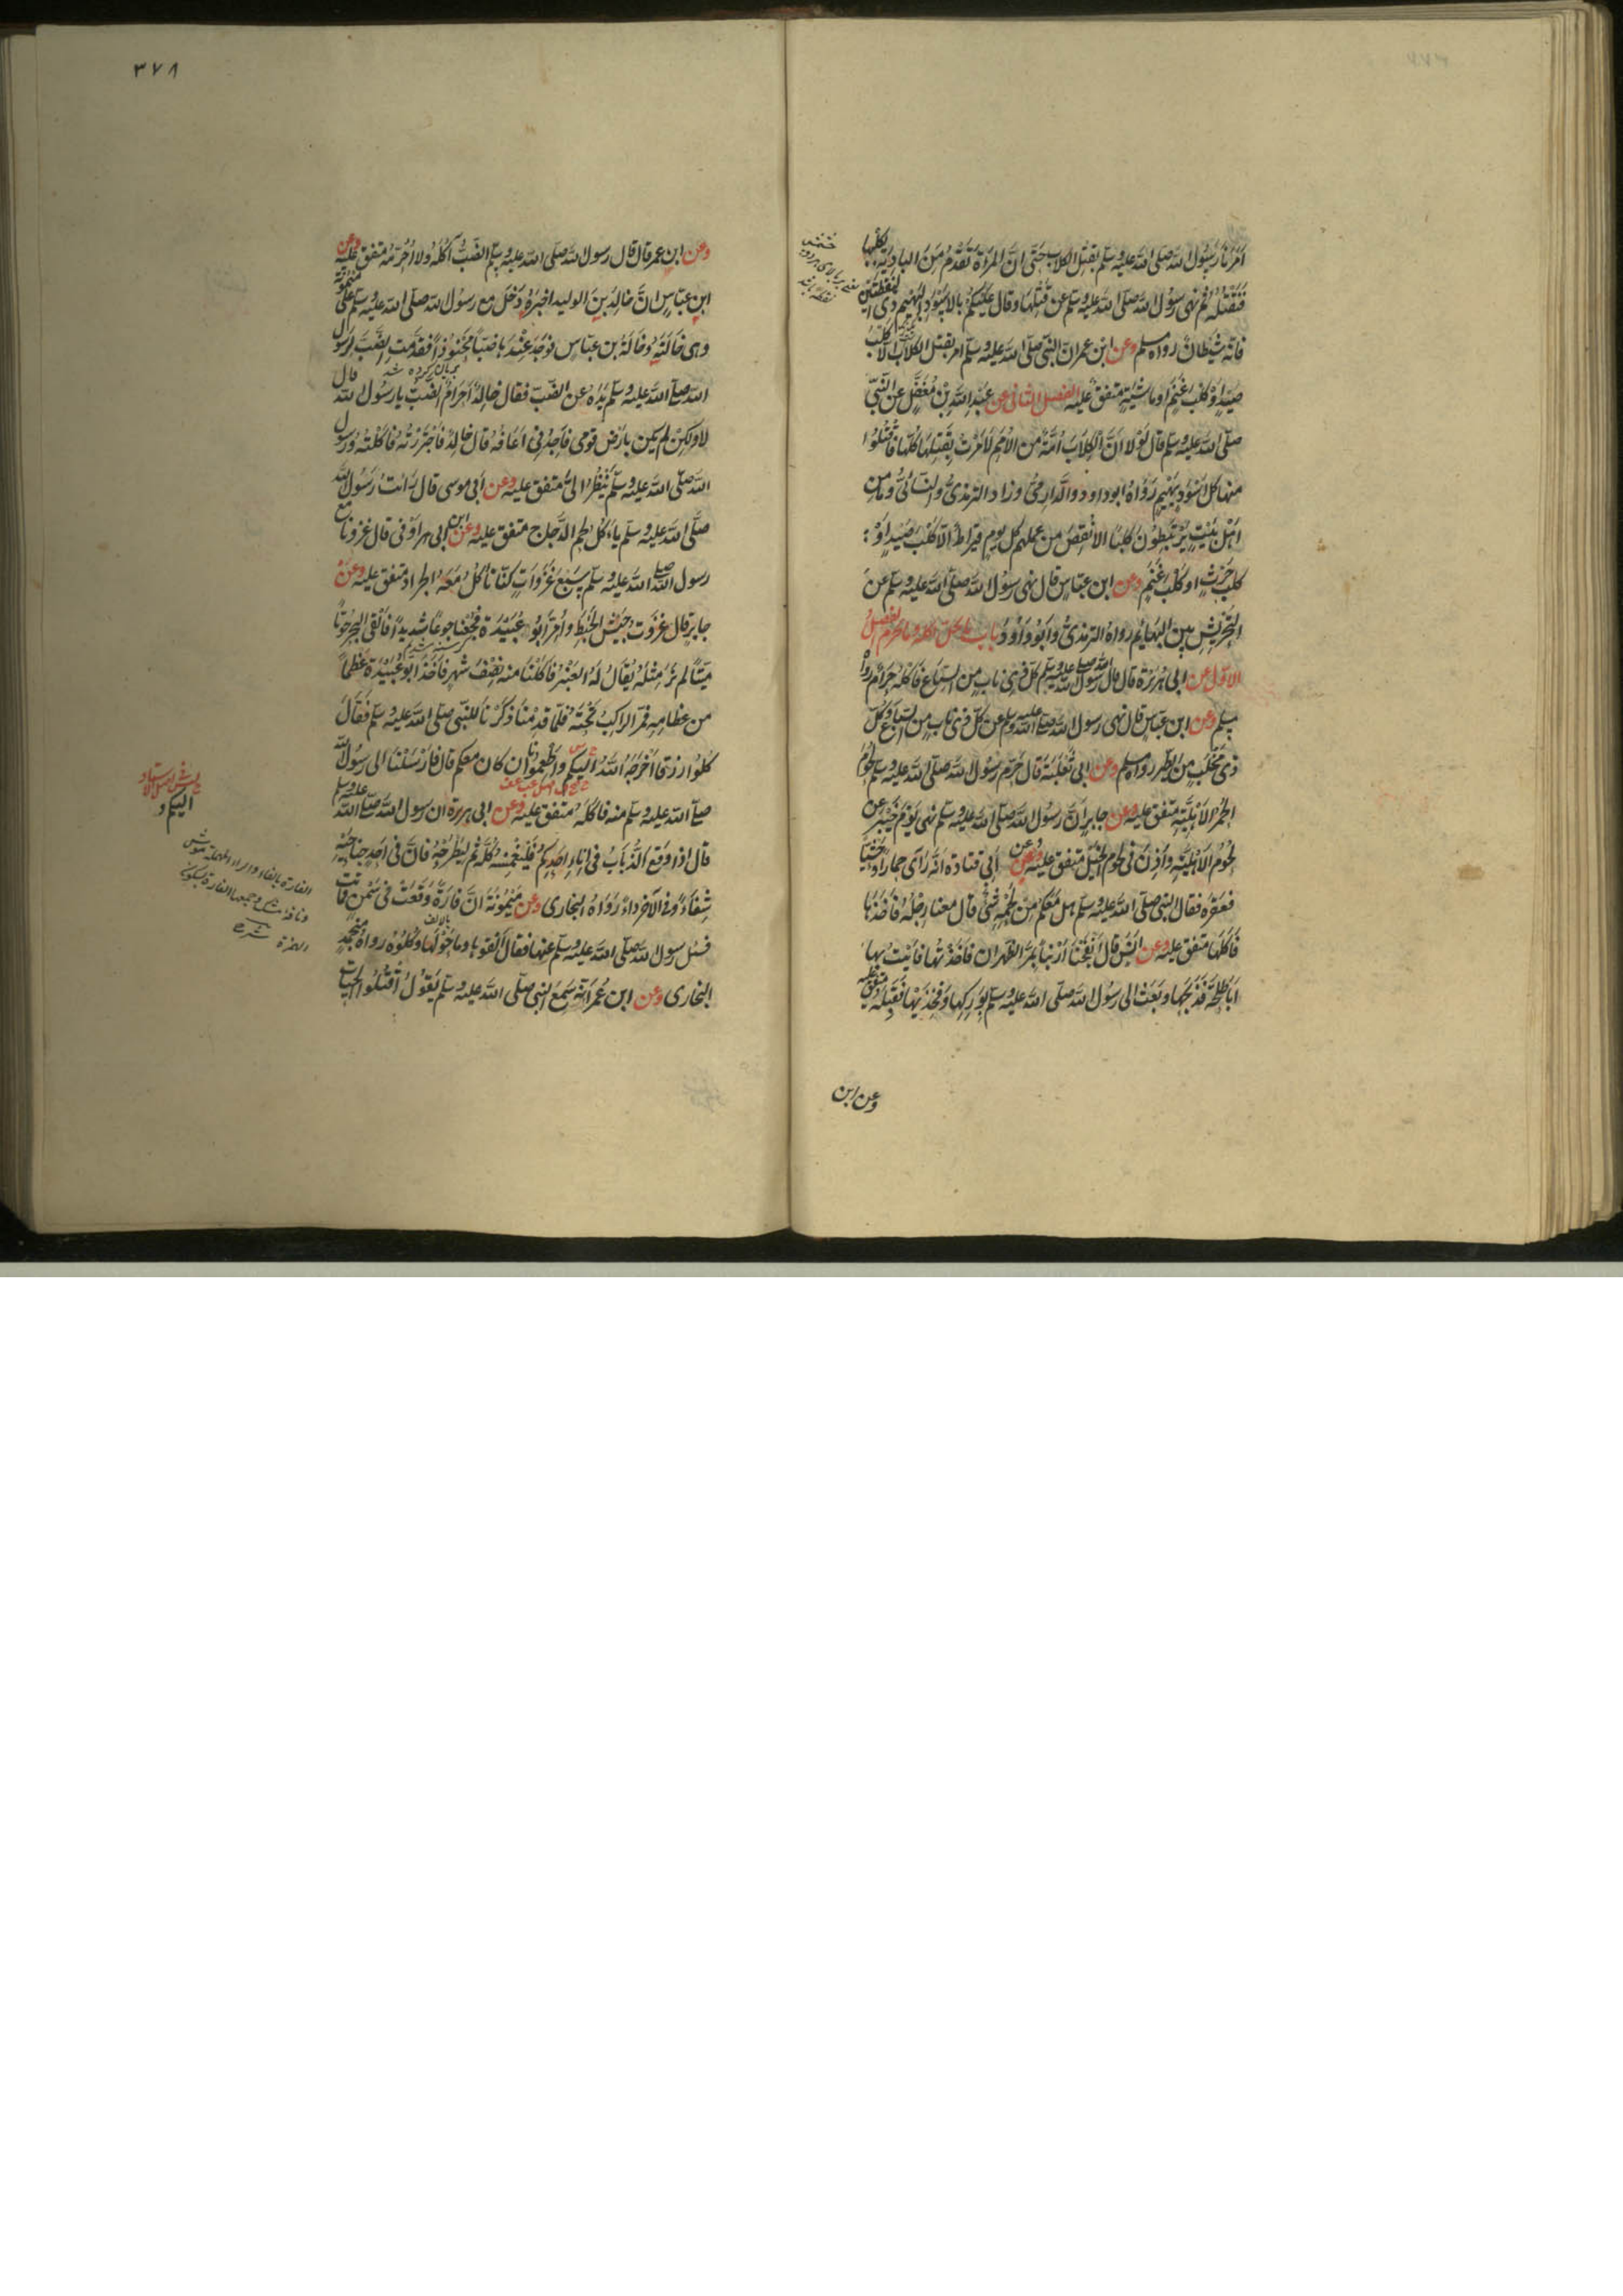 اَمَرَنَا رَسُولُ اللهِ صلى الله عليه وسلم بقتل الكلاب حَتَّى اِنَّ المَرْاَةَ تَقْدُمُ مِنَ البادية بكلبها
فَنَقْتُلُهُ ثُمَّ نهى رسُولُ الله صلى الله عليه وسلم عن قَتْلِهَا وقال عَلَيْكُمْ بالاَسْوَدِ البَهِيْمِ ذى النقطتين
فانّه شَيْطَانٌ رواه مسلم وعن ابن عمر انّ النّبىّ صلى الله عليه وسلم امر بقتل الكلاب الّا كلبَ
صَيْدٍ اَوْ كلب غَنَمٍ اَو ماشيةٍ متفق عليه الفصل الثانى عن عَبْدِ اللهِ بْنِ مُغَفَّلٍ عن النّبىّ
صلى الله عليه وسلم قال لَوْلا انَّ الْكِلابَ اُمَّةٌ من الاُمَمِ لاَمَرْتُ بِقَتْلِهَا كُلِّهَا فاقْتُلُوا
منها كل اَسْوَدَ بَهِيْمٍ رَوَاهُ ابوداود والدّارِمىُّ وزاد الترمذىُّ والنسائىُّ وما من
اهْلِ بَيْتٍ يَرْتَبِطُوْنَ كلبًا الا نُقِصَ من عملهم كل يوم قيراطٌ اِلّا كَلْبَ صَيْدٍ اَوْ
كلبَ حَرْثٍ او كلْبَ غَنَمٍ وعن ابن عبّاس قال نهى رسُولُ اللهِ صلّى الله عليه وسلم عن
التّحْرِيْشِ بين البهائم رواه الترمذىُّ وَاَبُو دَاوُدَ باب ما يحل اكله وما يحرم الفصل
الاوّل عن ابى هُرَيْرَةَ قال قال رسول الله صلى الله عليه وسلم كل ذى نابٍ من السِّباع فاكله حَرَامٌ رواه
مسلم وعن ابن عبّاسٍ قال نهى رسول الله صلى الله عليه وسلم عن كلّ ذى نابٍ من السّباع وَكلّ
ذى مِخْلَبٍ من الطّير رواه مسلم وعن ابى ثَعْلَبَةَ قال حرّم رَسُول الله صلى الله عليه وسلم لحُوْمَ
الحُمُر الاَهْلِيَّةِ متّفق عليه وعن جابرٍ انَّ رَسُولَ الله صلى الله عليه وسلم نهى يَوْمَ خَيْبَرَ عن
لحُوْمِ الاَهْلِيَّةِ واَذِنَ فى لحوم الخَيْلِ متفق عليه وعن ابى قتادة انّه رَاَى حِمارًا وحْشِيًّا
فعَقَرَه فقال النبى صلى الله عليه وسلم هل مَعَكُمْ مِنْ لَحْمِهِ شَىْءٌ قال معنا رِجْلُهُ فَاَخَذَهَا
فَاَكَلَهَا متفق عليه وعن انَسٍ قال اَنْفَجْنَا اَرْنَبًا بِمَرِّ الظَّهران فاَخَذْتُهَا فاَتَيْتُ بِهَا
اَبَا طَلْحَةَ فَذَبَحَهَا وبَعَثَ الى رسُول الله صلّى الله عليه وسلم بِوَرِكِهَا وفَخِذَيْهَا فقَبِلَهُ متفق عليه
وعن ابن
٣٧٨
وعن ابن عمر قال قال رسول الله صلى الله عليه وسلم الضَّبُّ لَسْتُ آكُلُهُ ولا اُحَرِّمُهُ متفق عليه وعن
ابن عبّاسٍ انّ خالدَ بنَ الوليد اخبرَهُ دَخَلَ مع رسُول الله صلى الله عليه وسلم على ميمونة
وهى خالَتُهُ وخالَةُ بن عبّاس فوَجَدَ عِنْدَهَا ضبًّا مَحْنُوْذًا فقدَّمَتِ الضَّبَّ لرسول
الله صلى الله عليه وسلم يَدَهُ عن الضّبّ فقال خالِدٌ اَحَرَامٌ الضّبّ يا رسُول الله قال
لا ولكِنْ لم يكن بارْض قومى فاَجِدُنى اَعَافُهُ قال خالِدٌ فاجْتَرَرْتُهُ فاكَلْتُه ورسول
الله صلى الله عليه وسلم يَنْظُرُ الىَّ متفق عليه وعن ابى موسى قال رَاَيْتُ رَسُولَ الله
صلّى الله عليه وسلم ياْكُلُ لحم الدَّجاج متفق عليه وعن ابن ابى اوفى قال غزونا مع
رسول الله صلى الله عليه وسلم سَبْعَ غَزَوَاتٍ كُنَّا نَاْكُلُ مَعَهُ الجراد متفق عليه وعن
جابر قال غَزَوْتُ جَيْشَ الخَبَطِ واُمِّرَ اَبُو عُبَيْدَةَ فَجُعْنَا جوعًا شديدًا فاَلْقَى البحرُ حُوْتًا
ميّتًا لم نَرَ مِثْلَهُ يُقَالُ لَهُ العَنْبَرُ فاَكَلْنَا منه نِصْفَ شَهْرٍ فاَخَذَ ابو عُبَيْدَةَ عَظْمًا
من عظامِهِ فمرّ الراكِبُ تَحْتَهُ فلمّا قدِمْنَا ذكرْنَا للنّبى صلى الله عليه وسلم فقَالَ
كُلُوا رزقًا اَخْرَجَهُ اللهُ اليكم واَطْعِمُونَا ان كان معكم قال فاَرْسَلْنَا الى رسُول الله
صلى الله عليه وسلم منه فاكَلَهُ متفق عليه وعن ابى هريرة ان رسول الله صلى الله عليه وسلم
قال اذا وقع الذُّبابُ فى اِناءِ احدِكم فَلْيَغْمِسْهُ كُلَّهُ ثم لِيَطْرَحْهُ فانّ فى احدِ جناحَيْهِ
شِفَاءً وفى الآخرِ داءً رَوَاهُ البخارى وعن مَيْمُوْنَةَ انّ فارةً وَقَعَتْ فى سَمْنٍ فماتت
فسئل رسول الله صلى الله عليه وسلم عنها فقال اَلْقُوْهَا وما حَوْلَهَا وكُلُوْهُ رواهُ
البخارى وعن ابن عُمَرَ انّهُ سَمِعَ النّبى صلى الله عليه وسلم يَقُوْلُ اقْتُلُوا الحيّات
اليكم و
الفارة بالفاء والراء المهملة موش